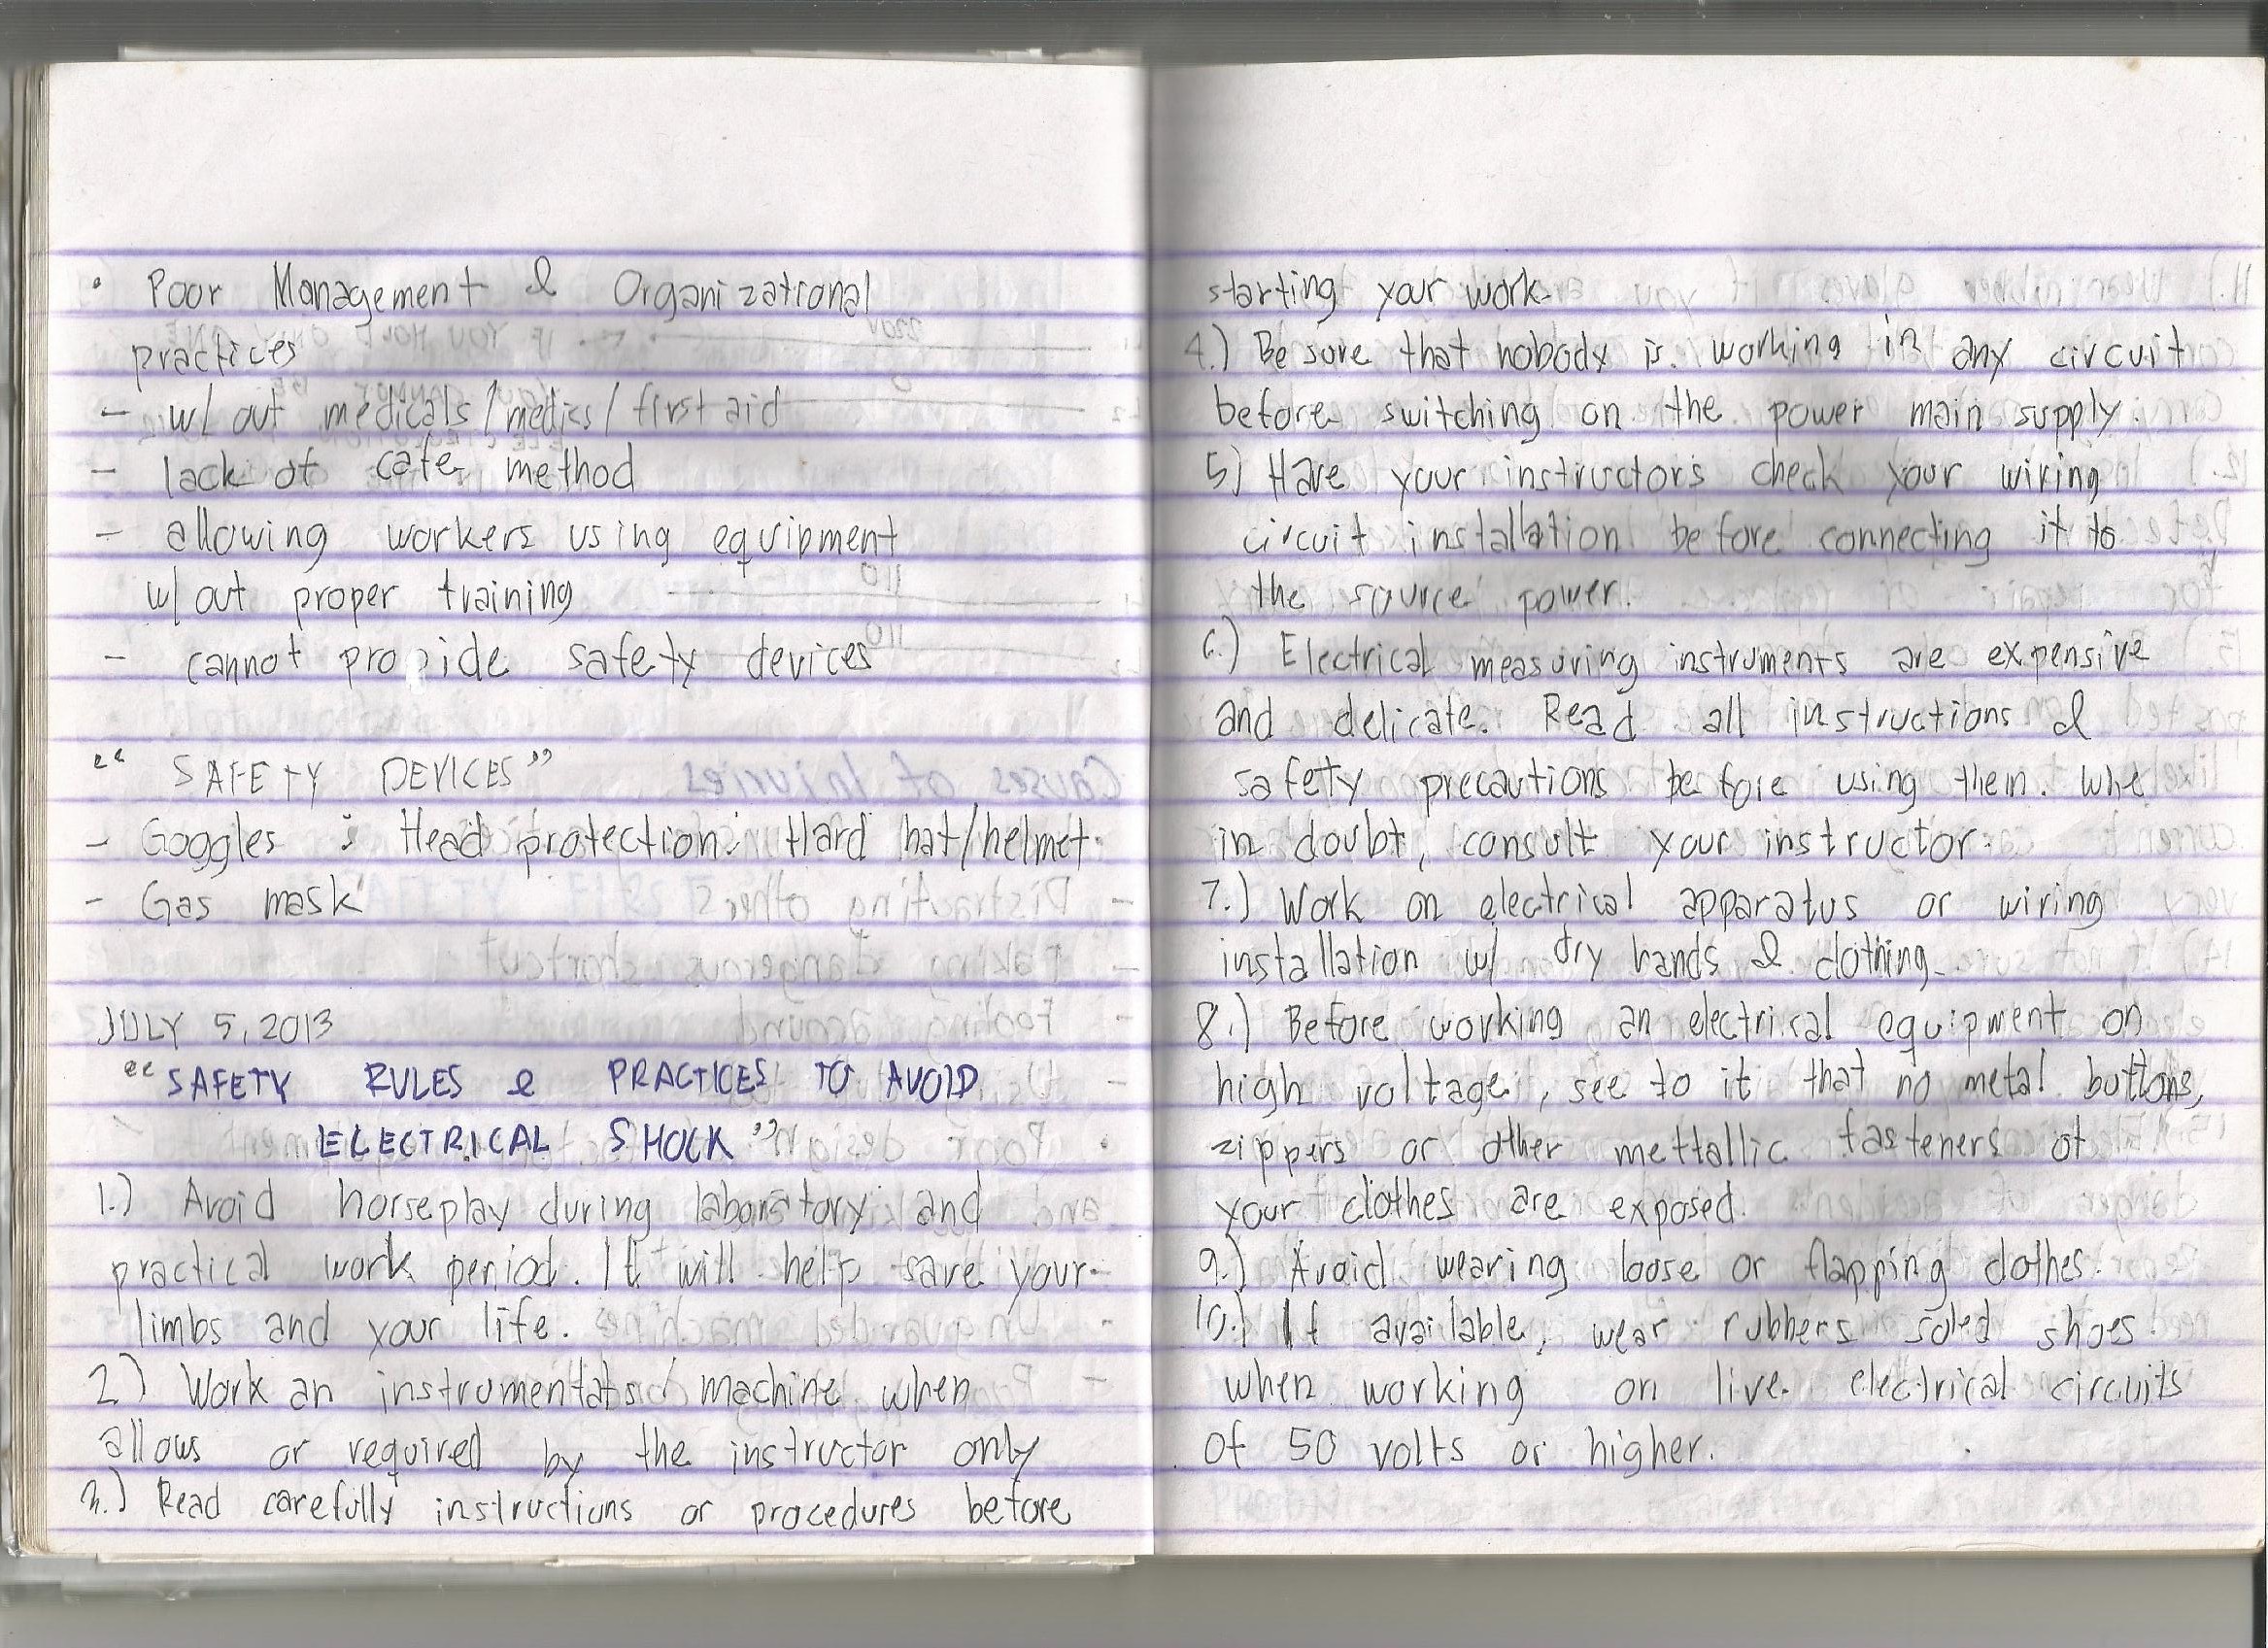 • Poor Management & Organizational
practices
- w/out medicals/medics/first aid
- lack of cafe method
- allowing workers using equipment
w/out proper training
- cannot propide safety devices
“ SAFETY DEVICES”
- Goggles ; Head protection: Hard hat/helmet.
- Gas mask
JULY 5, 2013
“SAFETY RULES & PRACTICES TO AVOID
ELECTRICAL SHOCK”
1.) Avoid horseplay during laboratory and
practical work period. It will help save your
limbs and your life.
2) Work an machine when
allows or required by the instructor only
3.) Read carefully instructions or procedures before
starting your work.
4.) Be sure that nobody is working in any circuit
before switching on the power main supply.
5) Have your instructors check your wiring
circuit installation before connecting it to
the source power.
6.) Electrical measuring instruments are expensive
and delicate. Read all instructions &
safety precautions before using them. Whe
in doubt, consult your instructor.
7.) Work on electrical apparatus or wiring
installation w/ dry hands & clothing.
8.) Before working an electrical equipment on
high voltage, see to it that no metal buttons,
zippers or other mettallic fasteners of
your clothes are exposed.
9.) Avoid wearing loose or flapping clothes.
10.) If available, wear rubbers soled shoes
when working on live electrical circuits
of 50 volts or higher.